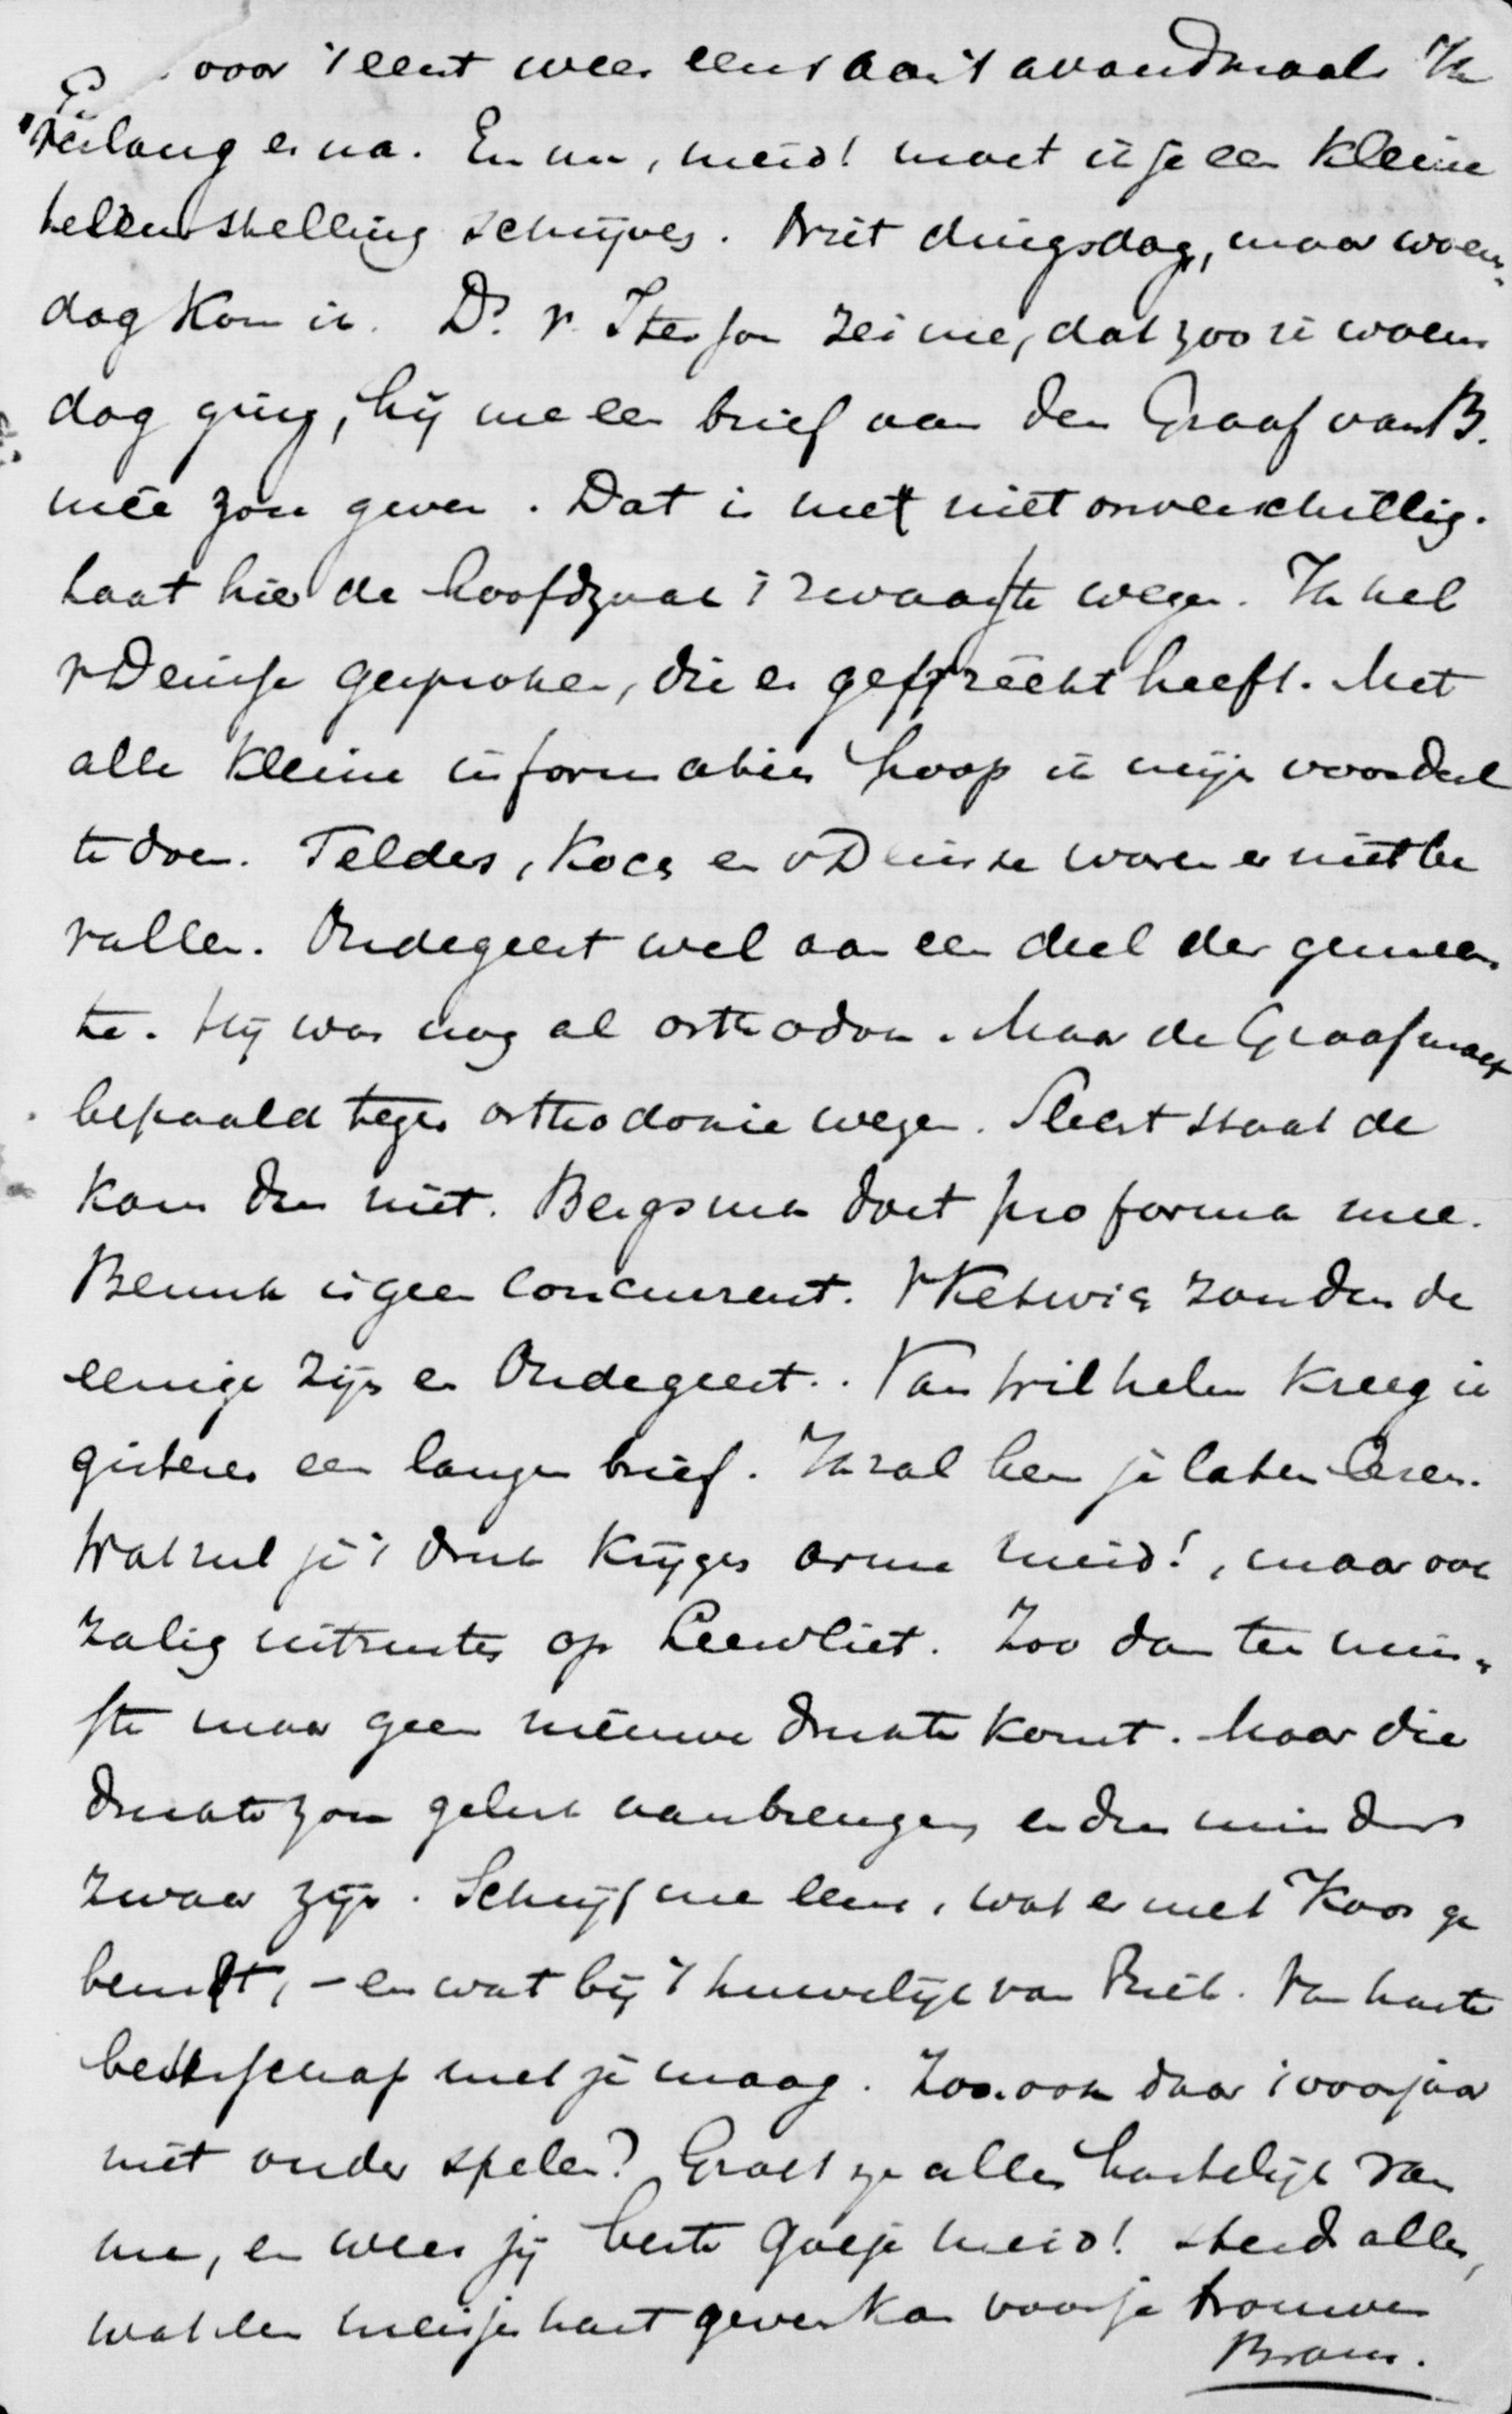 voor 't eerst weer eens aan 't avondmaal. Ik
verlang er na. En nu, meid! moet ik je een kleine
teleurstelling schrijven. Niet dingsdag, maar woens-
dag kom ik. Dr. v. Iterson zei me, dat zoo ik woens
dag ging, hij me een brief aan den Graaf van B.
mêe zou geven. Dat is met niet onverschillig.
Laat hier de hoofdzaak 't zwaarste wegen. Ik heb
v Deinse gesproken, die er gepreekt heeft. Met
alle kleine informaties hoop ik mijn voordeel
te doen. Telders, Koch en v Deinse waren er niet be
vallen. Oudegeest wel aan een deel der gemeen
te. Hij was nog al orthodox. Maar de Graaf moet
bepaald tegen orthodoxie wezen. Slecht staat de
kans dus niet. Bergsma doet pro forma mee.
Bennink is geen concurrent. v Ketwig zou dus de
eenige zijn en Oudegeest.. Van Wilhelm kreeg ik
gisteren een langen brief. Ik zal hem je laten lezen.
Wat zul je 't druk krijgen arme meid!, maar ook
zalig uitrusten op Leeuvliet. Zoo dan ten min-
ste maar geen nieuwe drukte komt. Maar die
drukte zou geluk aanbrengen en dus minder
zwaar zijn. Schrijf me eens, wat er met Koos ge
beurt, – en wat bij 't huwelijk van Piet. Van harte
beterschap met je maag. Zou ook daar 't voorjaar
niet onder spelen? Groet ze allen hartelijk van
me, en wees jij beste goeje meid! steeds alles,
wat een meisjes hart geven kan voor je trouwen
Bram.